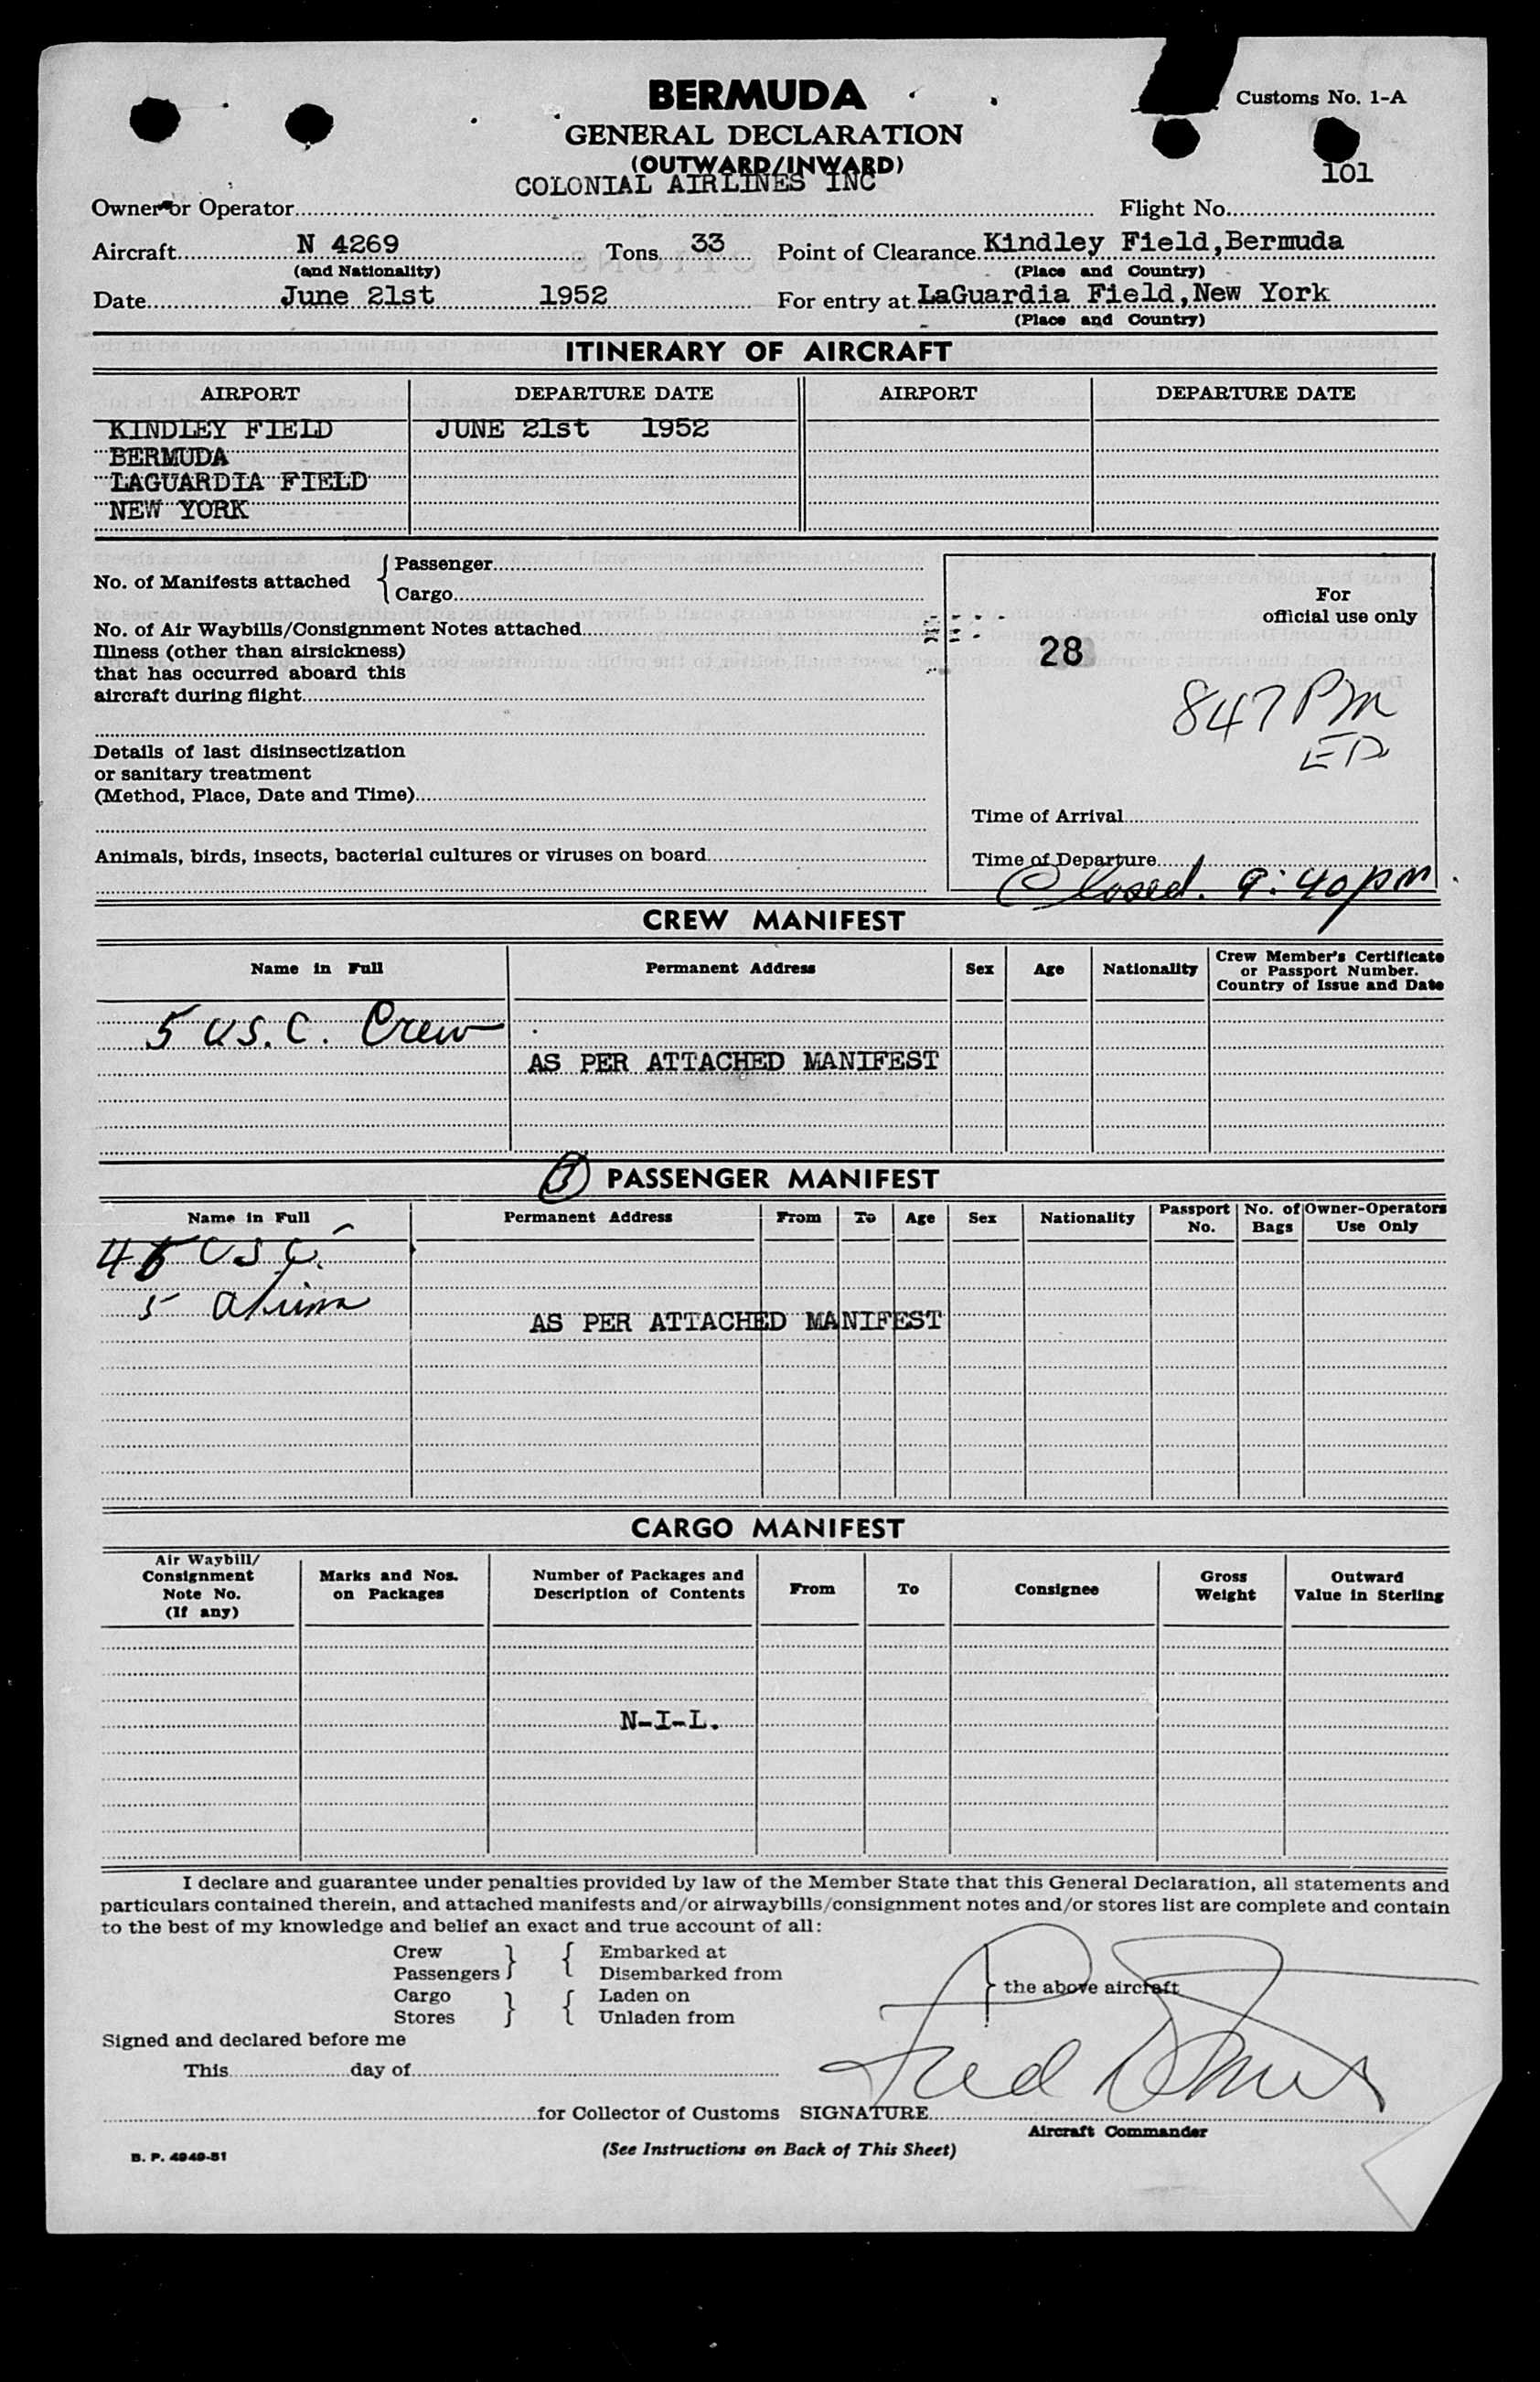 BERMUDA
Customs No. 1-A
GENERAL DECLARATION
(OUTWARD/INWARD)
101
COLONIAL AIRLINES INC
Owner or Operator Flight No.
Aircraft N 4269 Tons 33 Point of Clearance Kindley Field, Bermuda
(and Nationality) (Place and Country)
Date June 21st 1952 For entry at LaGuardia Field, New York
(Place and Country)
ITINERARY OF AIRCRAFT
AIRPORT DEPARTURE DATE AIRPORT DEPARTURE DATE
KINDLEY FIELD JUNE 21st 1952
BERMUDA
LAGUARDIA FIELD
NEW YORK
No. of Manifests attached { Passenger
Cargo
For
official use only
No. of Air Waybills/Consignment Notes attached
28
Illness (other than airsickness)
that has occurred aboard this
aircraft during flight
847 PM
ED
Details of last disinsectization
or sanitary treatment
(Method, Place, Date and Time)
Time of Arrival
Animals, birds, insects, bacterial cultures or viruses on board
Time of Departure
Closed. 9:40 pm
CREW MANIFEST
Name in Full Permanent Address Sex Age Nationality Crew Member's Certificate
or Passport Number.
Country of Issue and Date
5 U.S.C. Crew
AS PER ATTACHED MANIFEST
PASSENGER MANIFEST
Name in Full Permanent Address From To Age Sex Nationality Passport No. No. of Bags Owner-Operators Use Only
USC
5
AS PER ATTACHED MANIFEST
CARGO MANIFEST
Air Waybill/
Consignment
Note No.
(If any)
Marks and Nos.
on Packages
Number of Packages and
Description of Contents
From To Consignee
Gross
Weight
Outward
Value in Sterling
N-I-L.
I declare and guarantee under penalties provided by law of the Member State that this General Declaration, all statements and
particulars contained therein, and attached manifests and/or airwaybills/consignment notes and/or stores list are complete and contain
to the best of my knowledge and belief an exact and true account of all:
Crew } { Embarked at
Passengers Disembarked from
} the above aircraft
Cargo } { Laden on
Stores Unladen from
Signed and declared before me
This day of
Fred
for Collector of Customs SIGNATURE
Aircraft Commander
B. P. 4949-51
(See Instructions on Back of This Sheet)